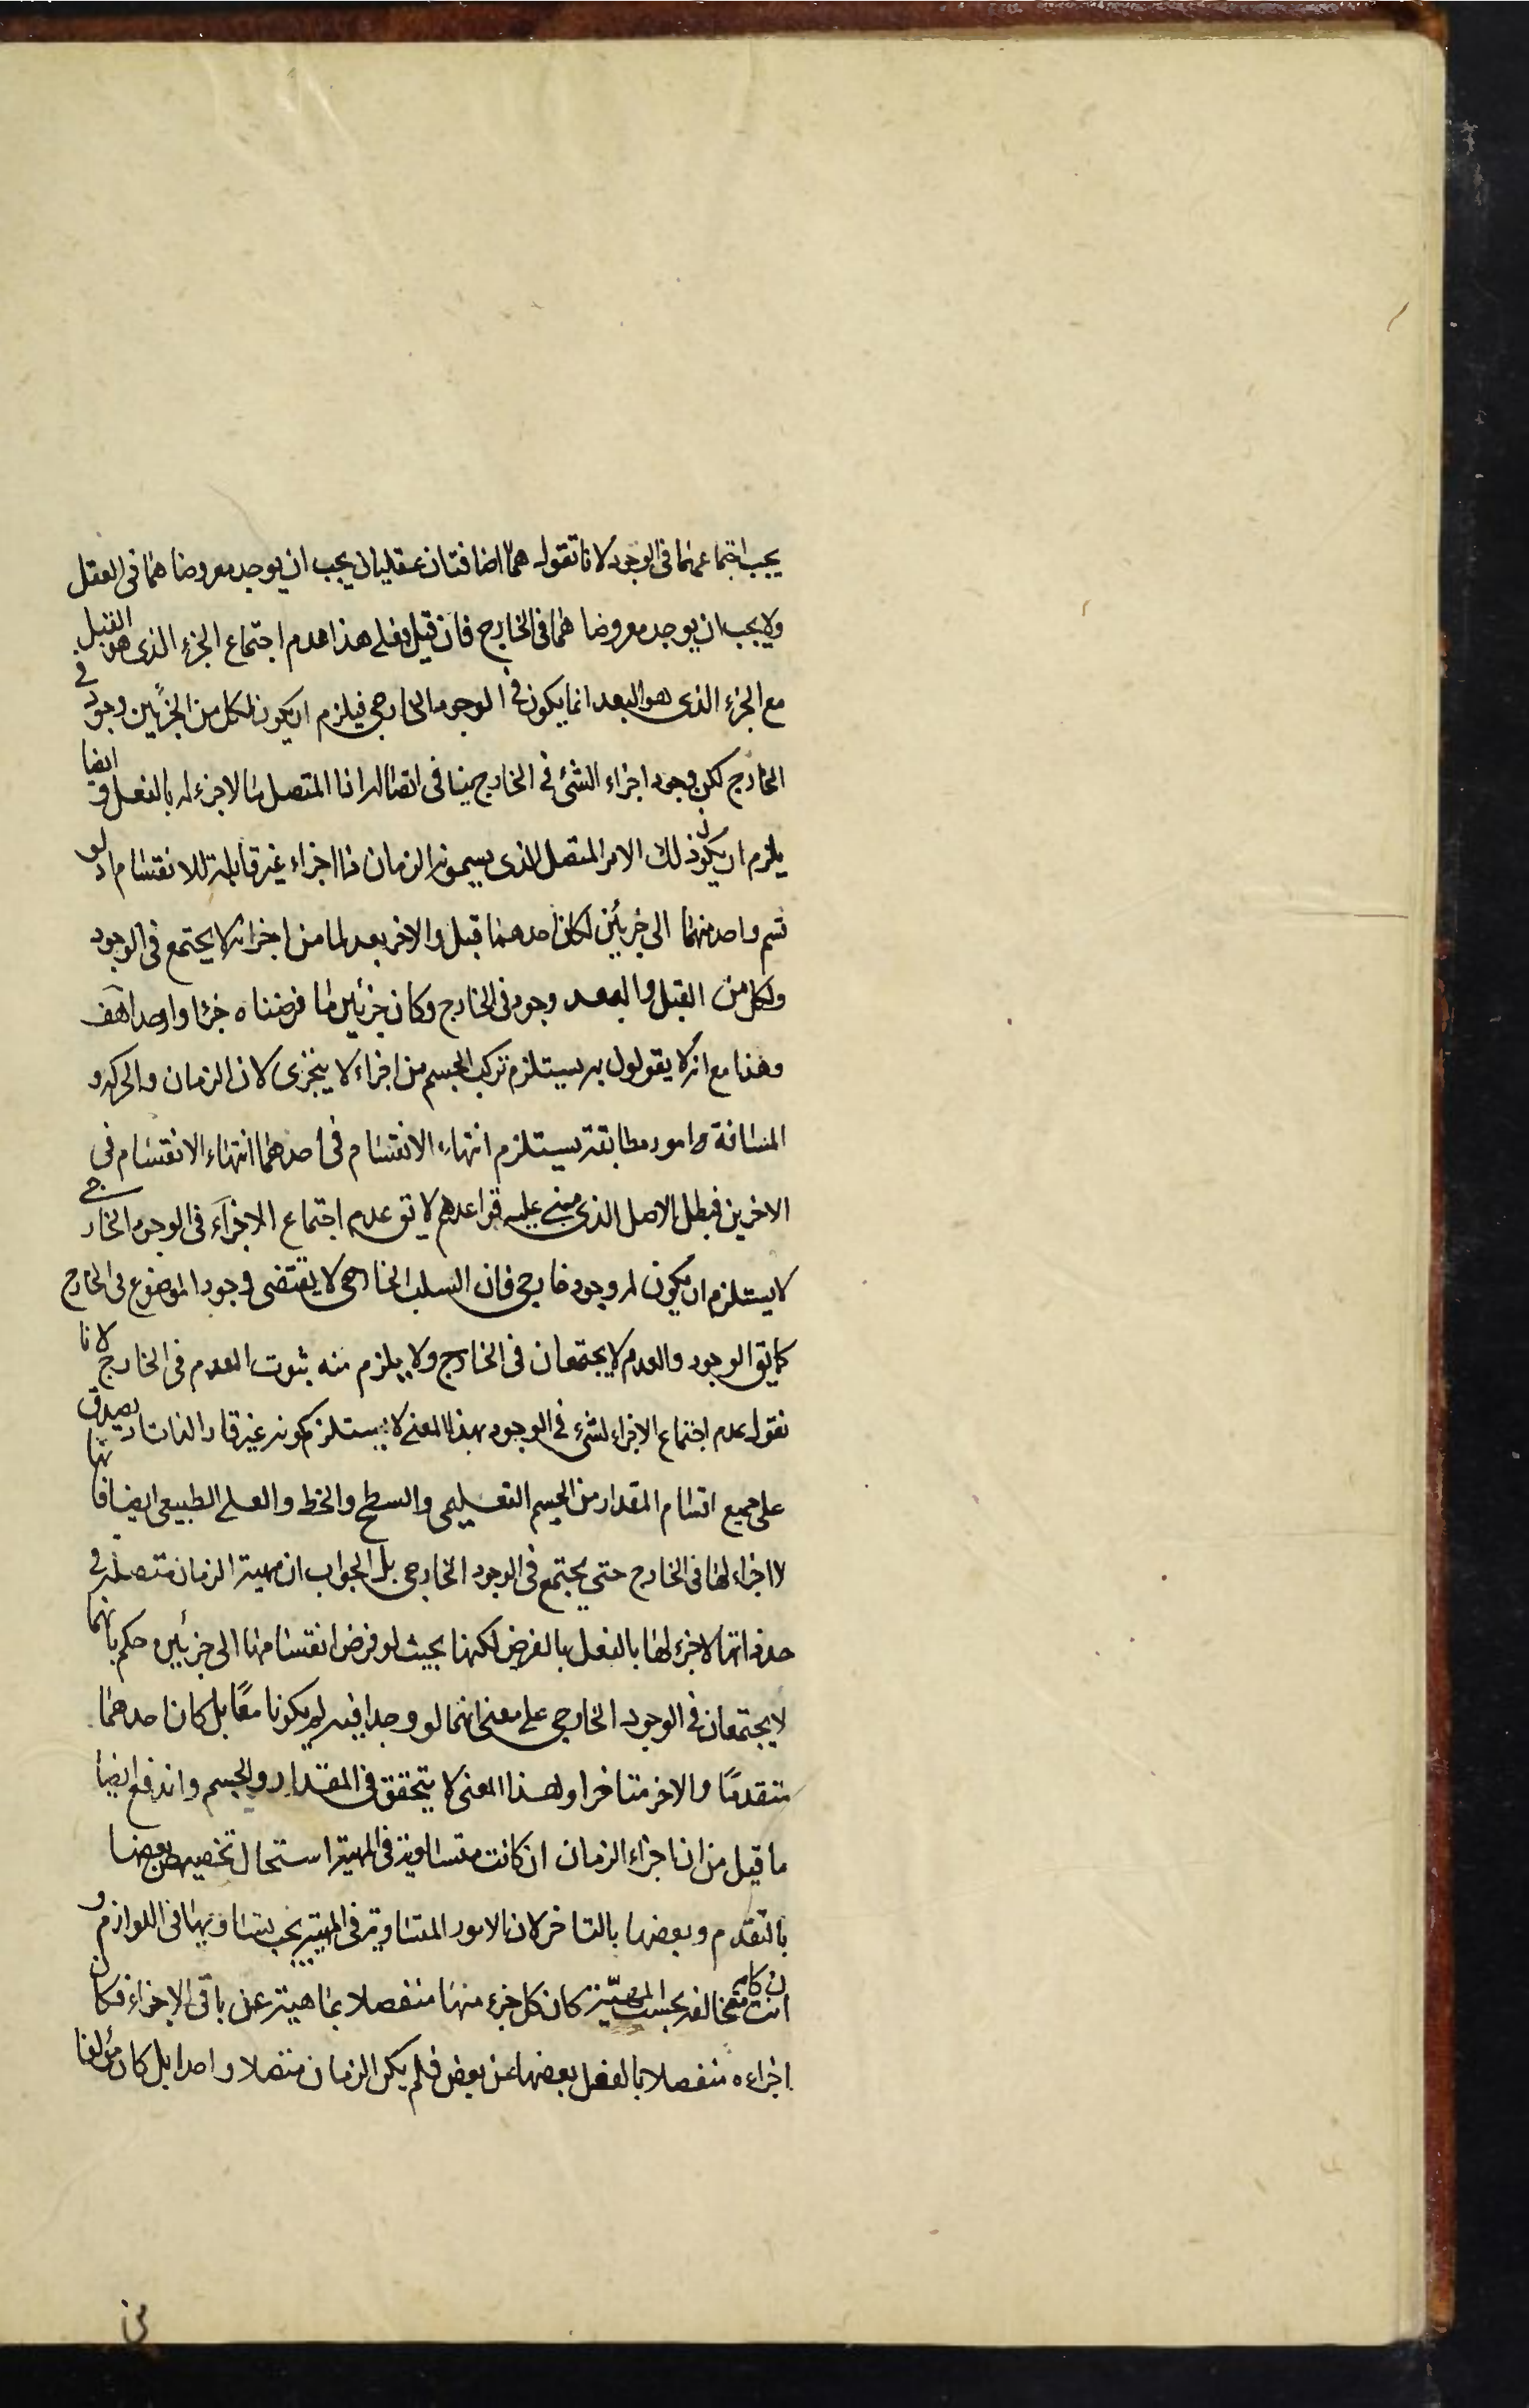 يجب اجتماعهما فى الوجود لانا نقول هما اضافتان عقليتان يجب ان يوجد معروضاهما فى العقل
ولا يجب ان يوجد معروضاهما فى الخارج فان قيل فعلى هذا عدم اجتماع الجزء الذى هو القبل
مع الجزء الذى هو البعد انما يكون فى الوجود الخارجى فيلزم ان يكون لكل من الجزئين وجود فى
الخارج لكن وجود اجزاء الشئ فى الخارج ينافى اتصاله اذ المتصل لا جزء له بالفعل و ايضا
يلزم ان يكون ذلك الامر المتصل الذى يسمونه الزمان ذا اجزاء غير قابلة للانقسام اذ لو
قسم واحد منهما الى جزئين لكان احدهما قبل والاخر بعد لما من اجزائه لا يجتمع فى الوجود
ولكل من القبل والبعد وجود فى الخارج وكان جزئين ما فرضناه جزءا واحدا هف
وهذا مع انه لا يقولون به يستلزم تركب الجسم من اجزاء لا يتجزى لان الزمان والحركة و
المسافة امور مطابقة يستلزم انتهاء الانقسام فى احدهما انتهاء الانقسام فى
الاخرين فبطل الاصل الذى مبنى عليه قواعدهم لا يق عدم اجتماع الاجزاء فى الوجود الخارجى
لا يستلزم ان يكون له وجود خارجى فان السلب الخارجى لا يقتضى وجود الموضوع فى الخارج
كما يق الوجود والعدم لا يجتمعان فى الخارج ولا يلزم منه ثبوت العدم فى الخارج لانا
نقول عدم اجتماع الاجزاء لشئ فى الوجود بهذا المعنى لا يستلزم كونه غير قار الذات اذ يصدق
على جميع اقسام المقدار من الجسم التعليمى والسطح والخط و الطبيعى ايضا فانها
لا اجزاء لها فى الخارج حتى يجتمع فى الوجود الخارجى بل الجواب ان مهية الزمان متصلة فى
حد ذاتها لا جزء لها بالفعل بالفرض لكنها بحيث لو فرض انقسامها الى جزئين حكم بانهما
لا يجتمعان فى الوجود الخارجى على معنى انهما لو وجدا فيه لم يكونا معا بل كان احدهما
متقدما والاخر متاخرا وهذا المعنى لا يتحقق فى المقدار والجسم واندفع ايضا
ما قيل من ان اجزاء الزمان ان كانت متساوية فى المهية استحال تخصيص بعضها
بالتقدم وبعضها بالتاخر لان الامور المتساوية فى المهية يجب تساويها فى اللوازم و
ان كانت متخالفة بحسب المهية كان كل جزء منها منفصلا بماهيته عن باقى الاجزاء فكان
اجزاءه منفصلا بالفعل بعضها عن بعض فلم يكن الزمان متصلا واحدا بل كان مؤلفا
من